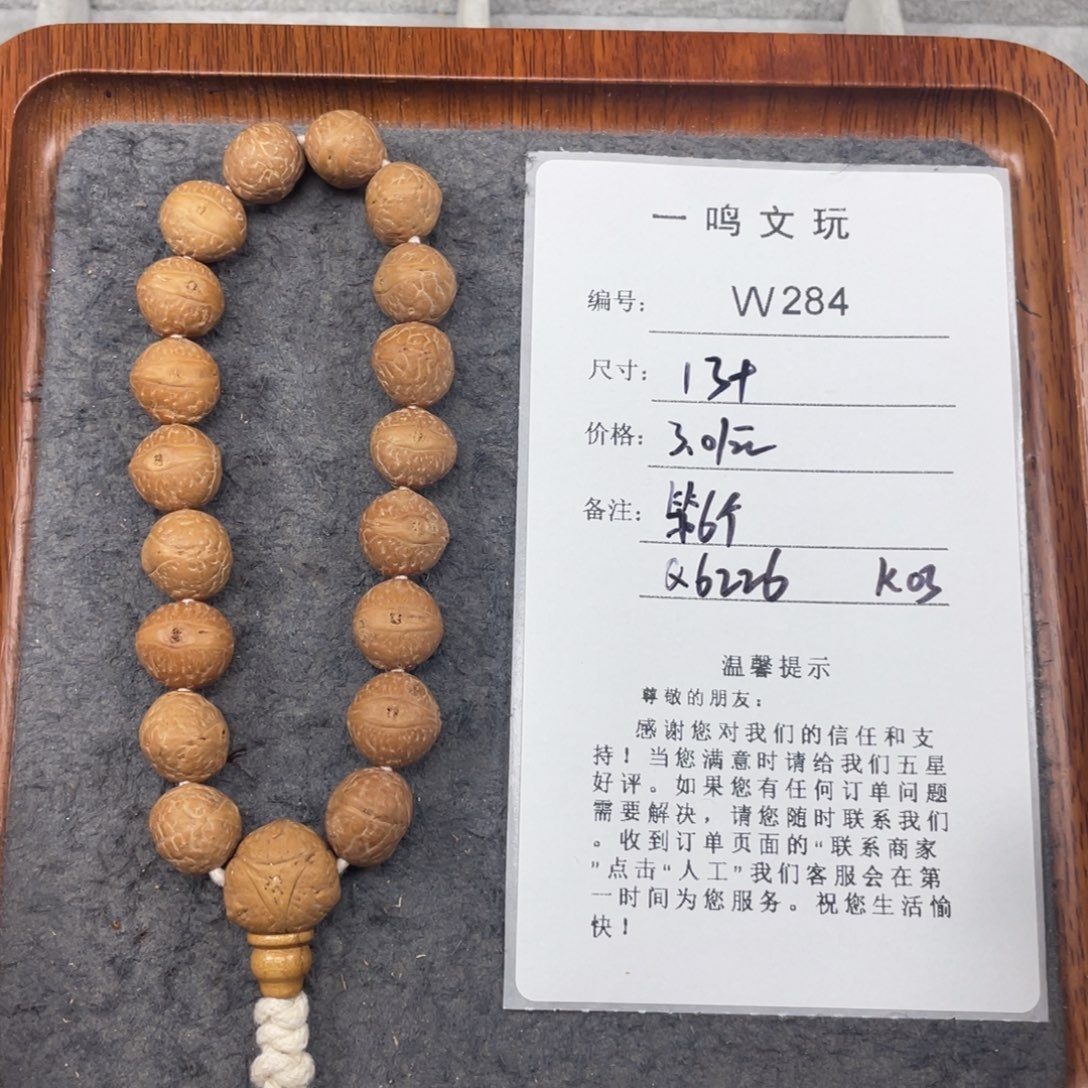 一鸣文玩
编号: W284
尺寸: 13+
价格: 3.01元
备注: 6个
Q6226 K03
温馨提示
尊敬的朋友:
感谢您对我们的信任和支
持!当您满意时请给我们五星
好评。如果您有任何订单问题
需要解决,请您随时联系我们
。收到订单页面的“联系商家
”点击“人工”我们客服会在第
一时间为您服务。祝您生活愉
快!